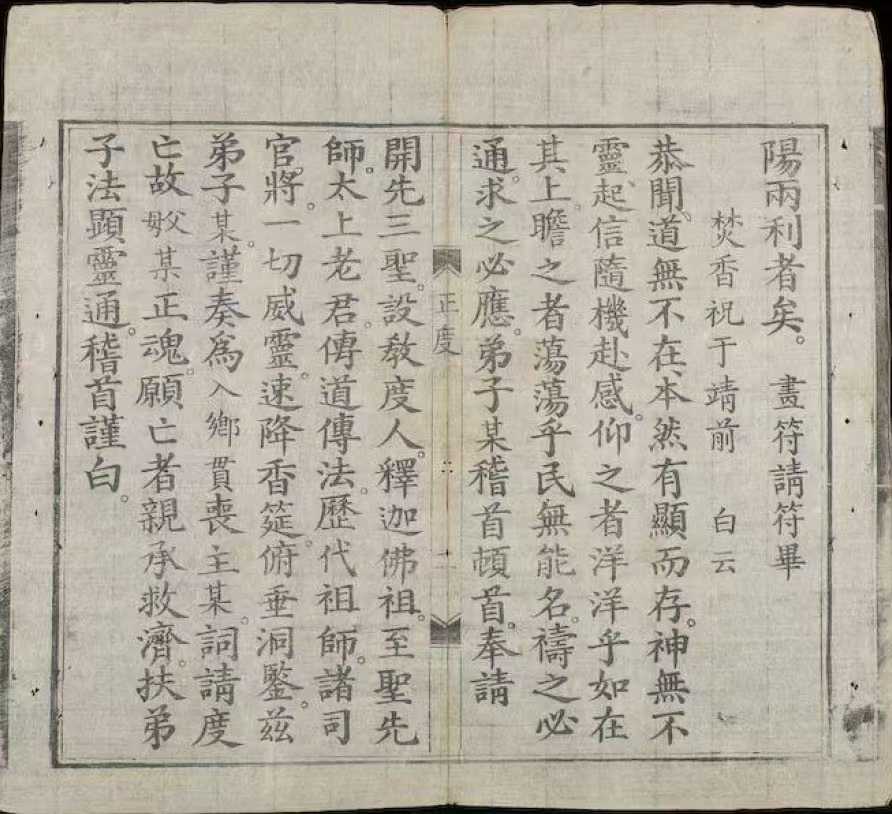 陽兩利者矣。 畫符請符畢
焚香祝于靖前 白云
恭聞、道無不在、本然有顯而存。神無不
靈。起信隨機赴感。仰之者洋洋乎如在
其上。瞻之者蕩蕩乎民無能名。禱之必
通。求之必應。弟子某稽首頓首。奉請
正度
二
開先三聖。設教度人。釋迦佛祖。至聖先
師。太上老君。傳道傳法。歷代祖師。諸司
官。將。一切威靈。速降香筵。俯垂洞鑒。茲
弟子某。謹奏為入鄉貫喪主某。詞請度
亡故父母某正魂。願亡者親承救濟。扶弟
子法顯靈通。稽首謹白。